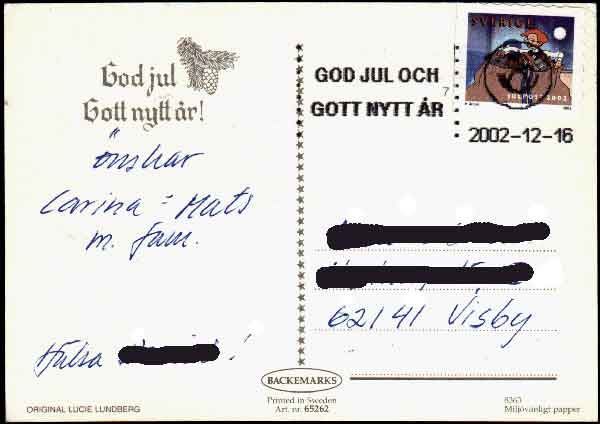 God jul
Gott nytt år!
önskar
Carina = Mats
m. fam.
Hälsa !
ORIGINAL LUCIE LUNDBERG
SVERIGE
JULPOST 2002
GOD JUL OCH
7
GOTT NYTT ÅR
2002-12-16
62141 Visby
BACKEMARKS
Printed in Sweden
Art. nr. 65262
8363
Miljövänligt papper